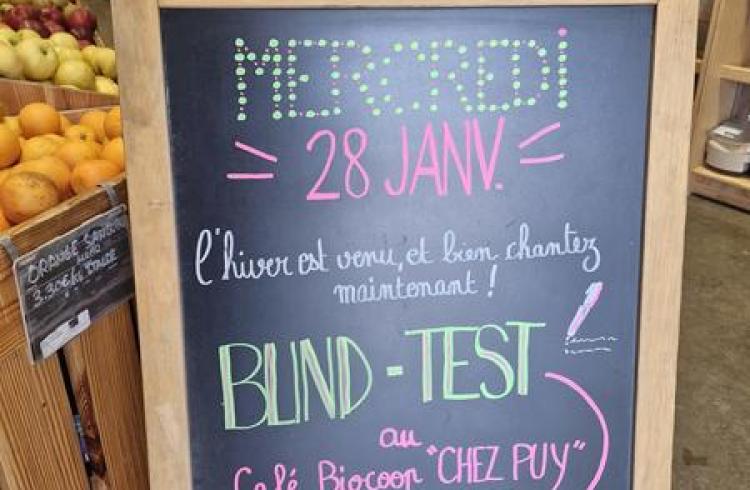 MERCREDI
28 JANV.
l'hiver est venu, et bien chantez
maintenant !
BLIND-TEST
au
Café Biocoop "CHEZ PUY"
ORANGE SANGUINE
3.30€/k